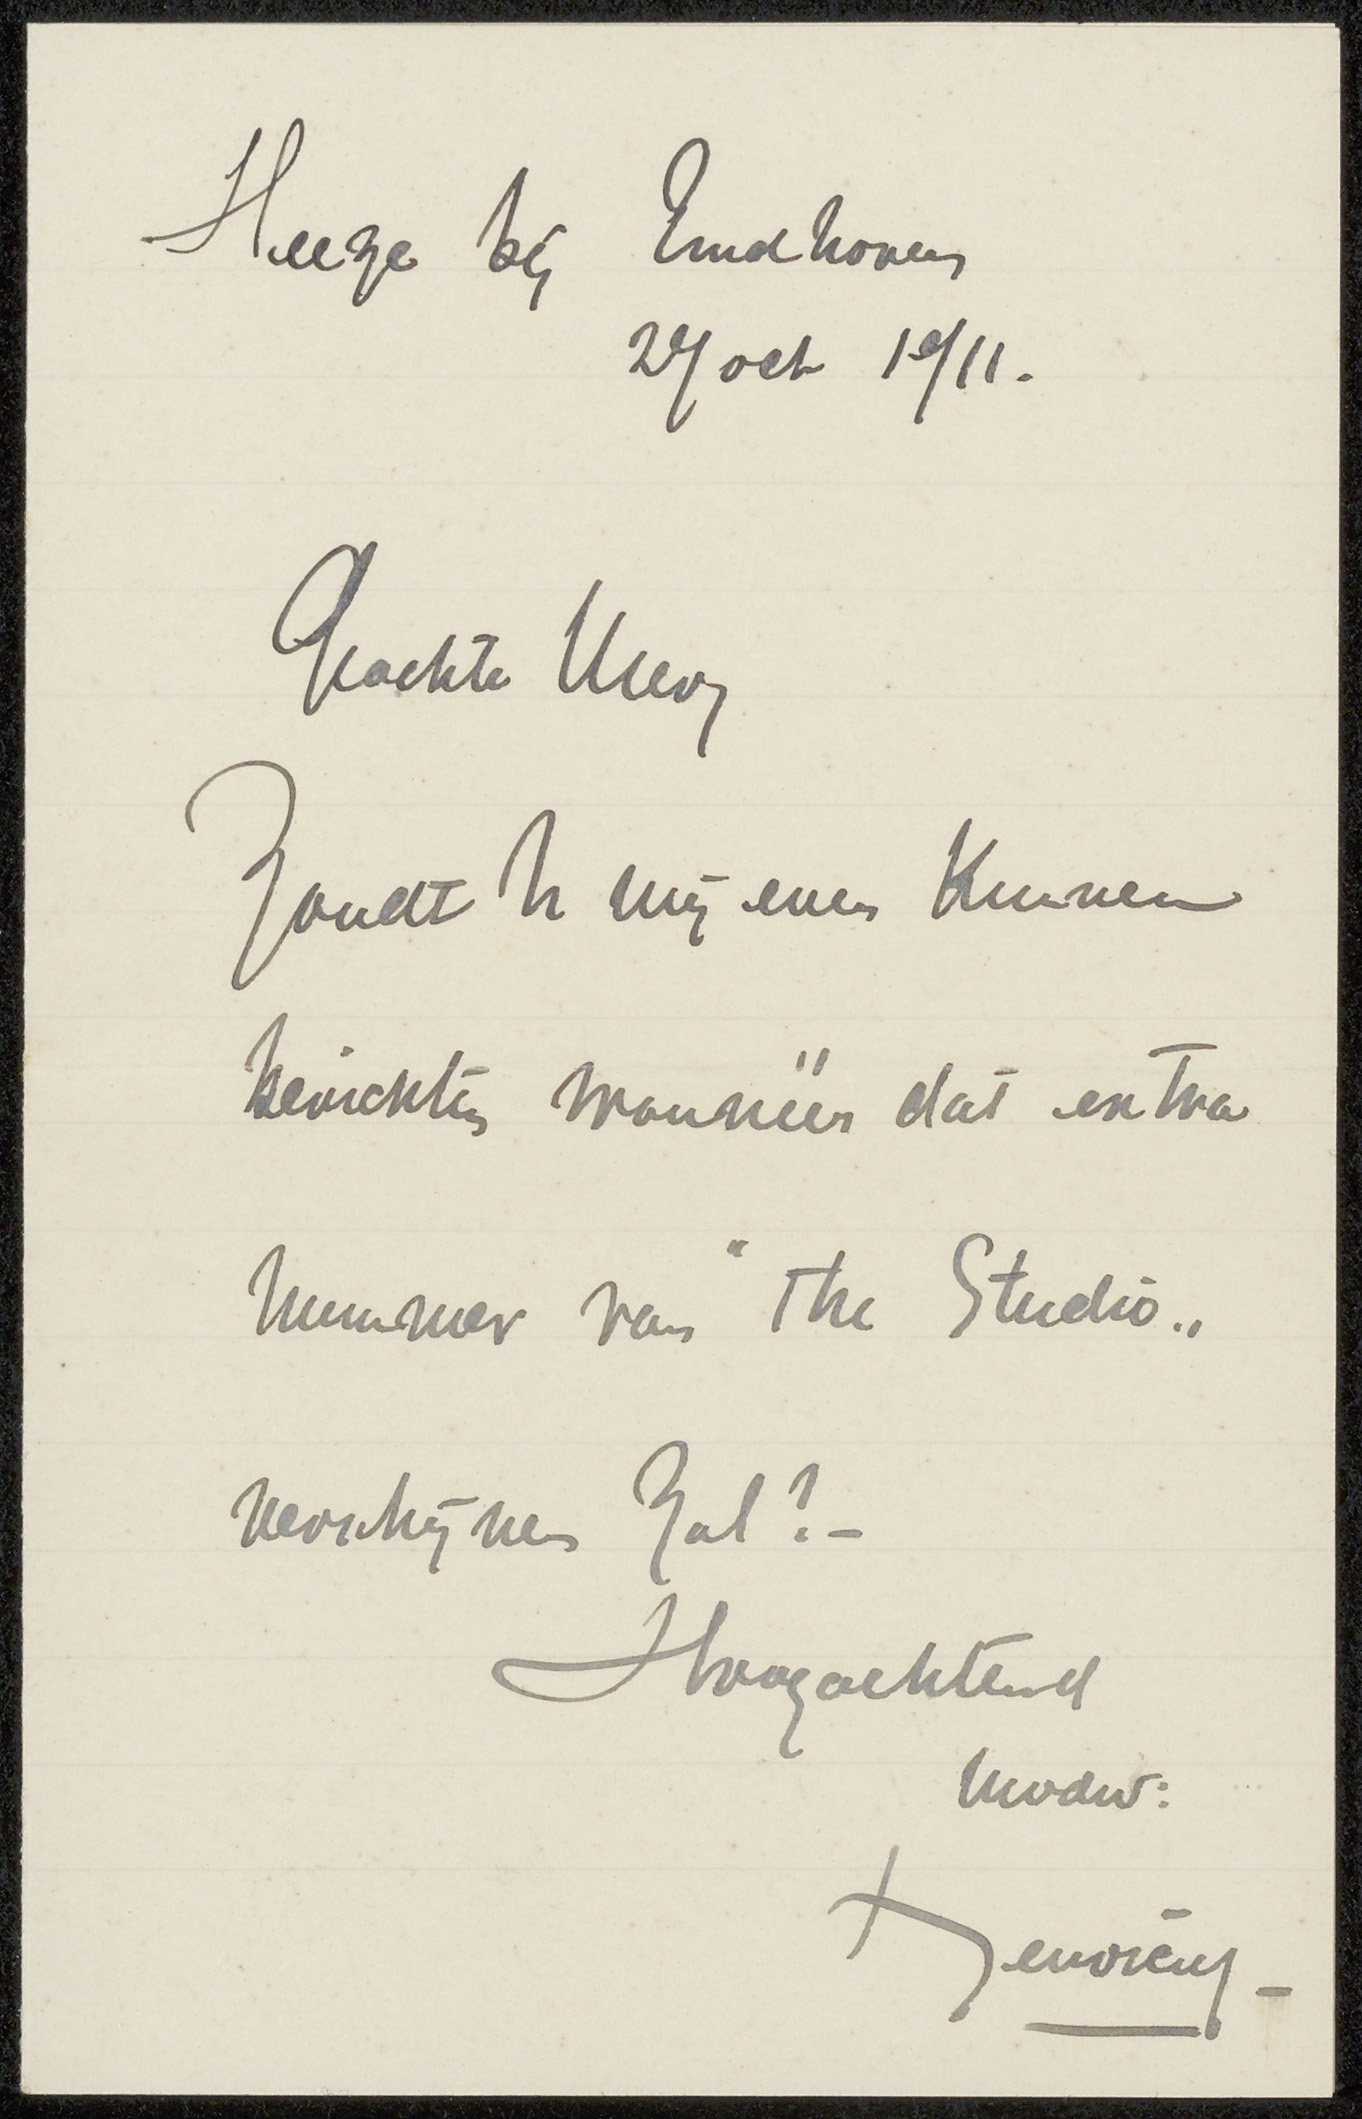 Heeze bij Eindhoven
27 oct 1911.
Geachte Mevr
Zoudt U mij even kunnen
berichten wanneër dat extra
nummer van "The Studio„
verschijnen zal? –
Hoogachtend
Uwdw: